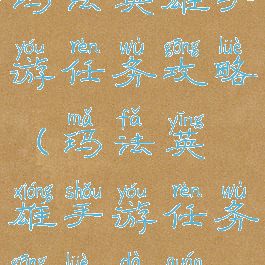 玛法英雄
yóu rèn wù gōng lüè
游任务攻略
mǎ fǎ yīng
(玛法英
xióng shǒu yóu rèn wù
雄手游任务
gōng lüè dà quán